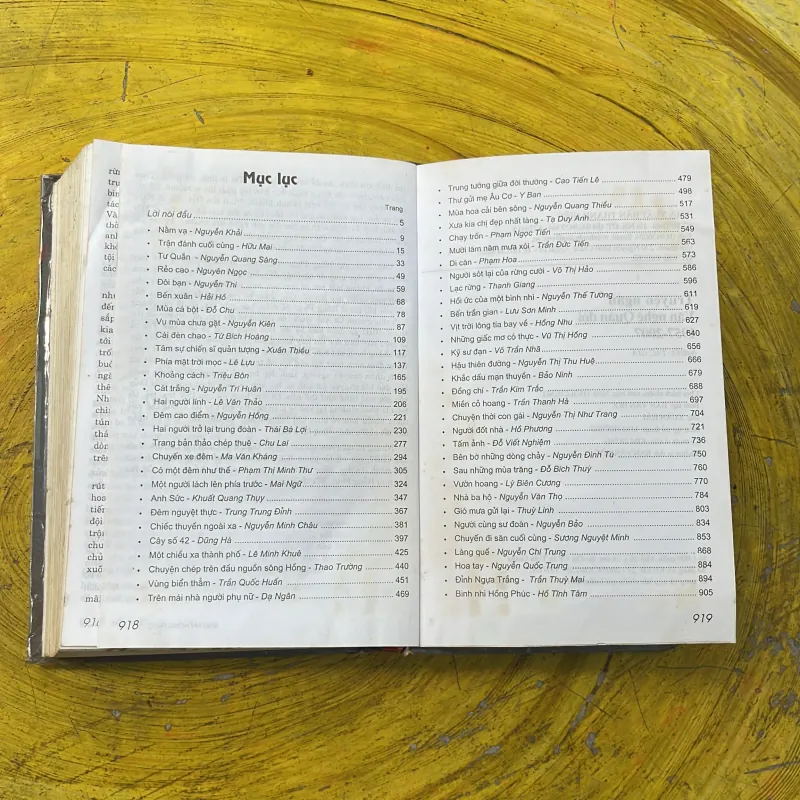 Mục lục
Trang
Lời nói đầu 5
• Nằm vạ - Nguyễn Khải 9
• Trận đánh cuối cùng - Hữu Mai 15
• Tư Quắn - Nguyễn Quang Sáng 33
• Rẻo cao - Nguyên Ngọc 49
• Đôi bạn - Nguyễn Thi 59
• Bến xuân - Hải Hồ 68
• Mùa cá bột - Đỗ Chu 78
• Vụ mùa chưa gặt - Nguyễn Kiên 87
• Cái đèn chao - Từ Bích Hoàng 109
• Tâm sự chiến sĩ quân tượng - Xuân Thiều 117
• Phía mặt trời mọc - Lê Lựu 137
• Khoảng cách - Triệu Bôn 165
• Cát trắng - Nguyễn Trí Huân 195
• Hai người lính - Lê Văn Thảo 206
• Đêm cao điểm - Nguyễn Hồng 221
• Hai người trở lại trung đoàn - Thái Bá Lợi 230
• Trang bản thảo chép thuê - Chu Lai 277
• Chuyến xe đêm - Ma Văn Kháng 294
• Có một đêm như thế - Phạm Thị Minh Thư 305
• Một người lách lên phía trước - Mai Ngữ 324
• Anh Sức - Khuất Quang Thụy 347
• Đêm nguyệt thực - Trung Trung Đỉnh 367
• Chiếc thuyền ngoài xa - Nguyễn Minh Châu 381
• Cây số 42 - Dũng Hà 397
• Một chiều xa thành phố - Lê Minh Khuê 425
• Chuyện chép trên đầu nguồn sông Hồng - Thao Trường 440
• Vùng biển thẳm - Trần Quốc Huấn 451
• Trên mái nhà người phụ nữ - Dạ Ngân 469
918
• Trung tướng giữa đời thường - Cao Tiến Lê 479
• Thư gửi mẹ Âu Cơ - Y Ban 498
• Mùa hoa cải bên sông - Nguyễn Quang Thiều 517
• Xưa kia chị đẹp nhất làng - Tạ Duy Anh 531
• Chạy trốn - Phạm Ngọc Tiến 549
• Mười lăm năm mưa xói - Trần Đức Tiến 563
• Di căn - Phạm Hoa 573
• Người sót lại của rừng cười - Võ Thị Hảo 586
• Lạc rừng - Thanh Giang 596
• Hồi ức của một binh nhì - Nguyễn Thế Tường 611
• Bến trần gian - Lưu Sơn Minh 619
• Vịt trời lông tía bay về - Hồng Nhu 627
• Những giấc mơ có thực - Vũ Thị Hồng 640
• Kỹ sư đạn - Võ Trần Nhã 656
• Hậu thiên đường - Nguyễn Thị Thu Huệ 666
• Khắc dấu mạn thuyền - Bảo Ninh 679
• Đồng chí - Trần Kim Trắc 688
• Miền cỏ hoang - Trần Thanh Hà 697
• Chuyện thời con gái - Nguyễn Thị Như Trang 704
• Người đốt nhà - Hồ Phương 721
• Tấm ảnh - Đỗ Viết Nghiệm 736
• Bên bờ những dòng chảy - Nguyễn Đình Tú 750
• Sau những mùa trăng - Đỗ Bích Thuý 760
• Vườn hoang - Lý Biên Cương 770
• Nhà ba hộ - Nguyễn Văn Thọ 784
• Gió mưa gửi lại - Thuỳ Linh 803
• Người cùng sư đoàn - Nguyễn Bảo 834
• Chuyến đi săn cuối cùng - Sương Nguyệt Minh 853
• Làng quê - Nguyễn Chí Trung 868
• Hoa tay - Nguyễn Quốc Trung 884
• Đỉnh Ngựa Trắng - Trần Thuỳ Mai 894
• Binh nhì Hồng Phúc - Hồ Tĩnh Tâm 905
919